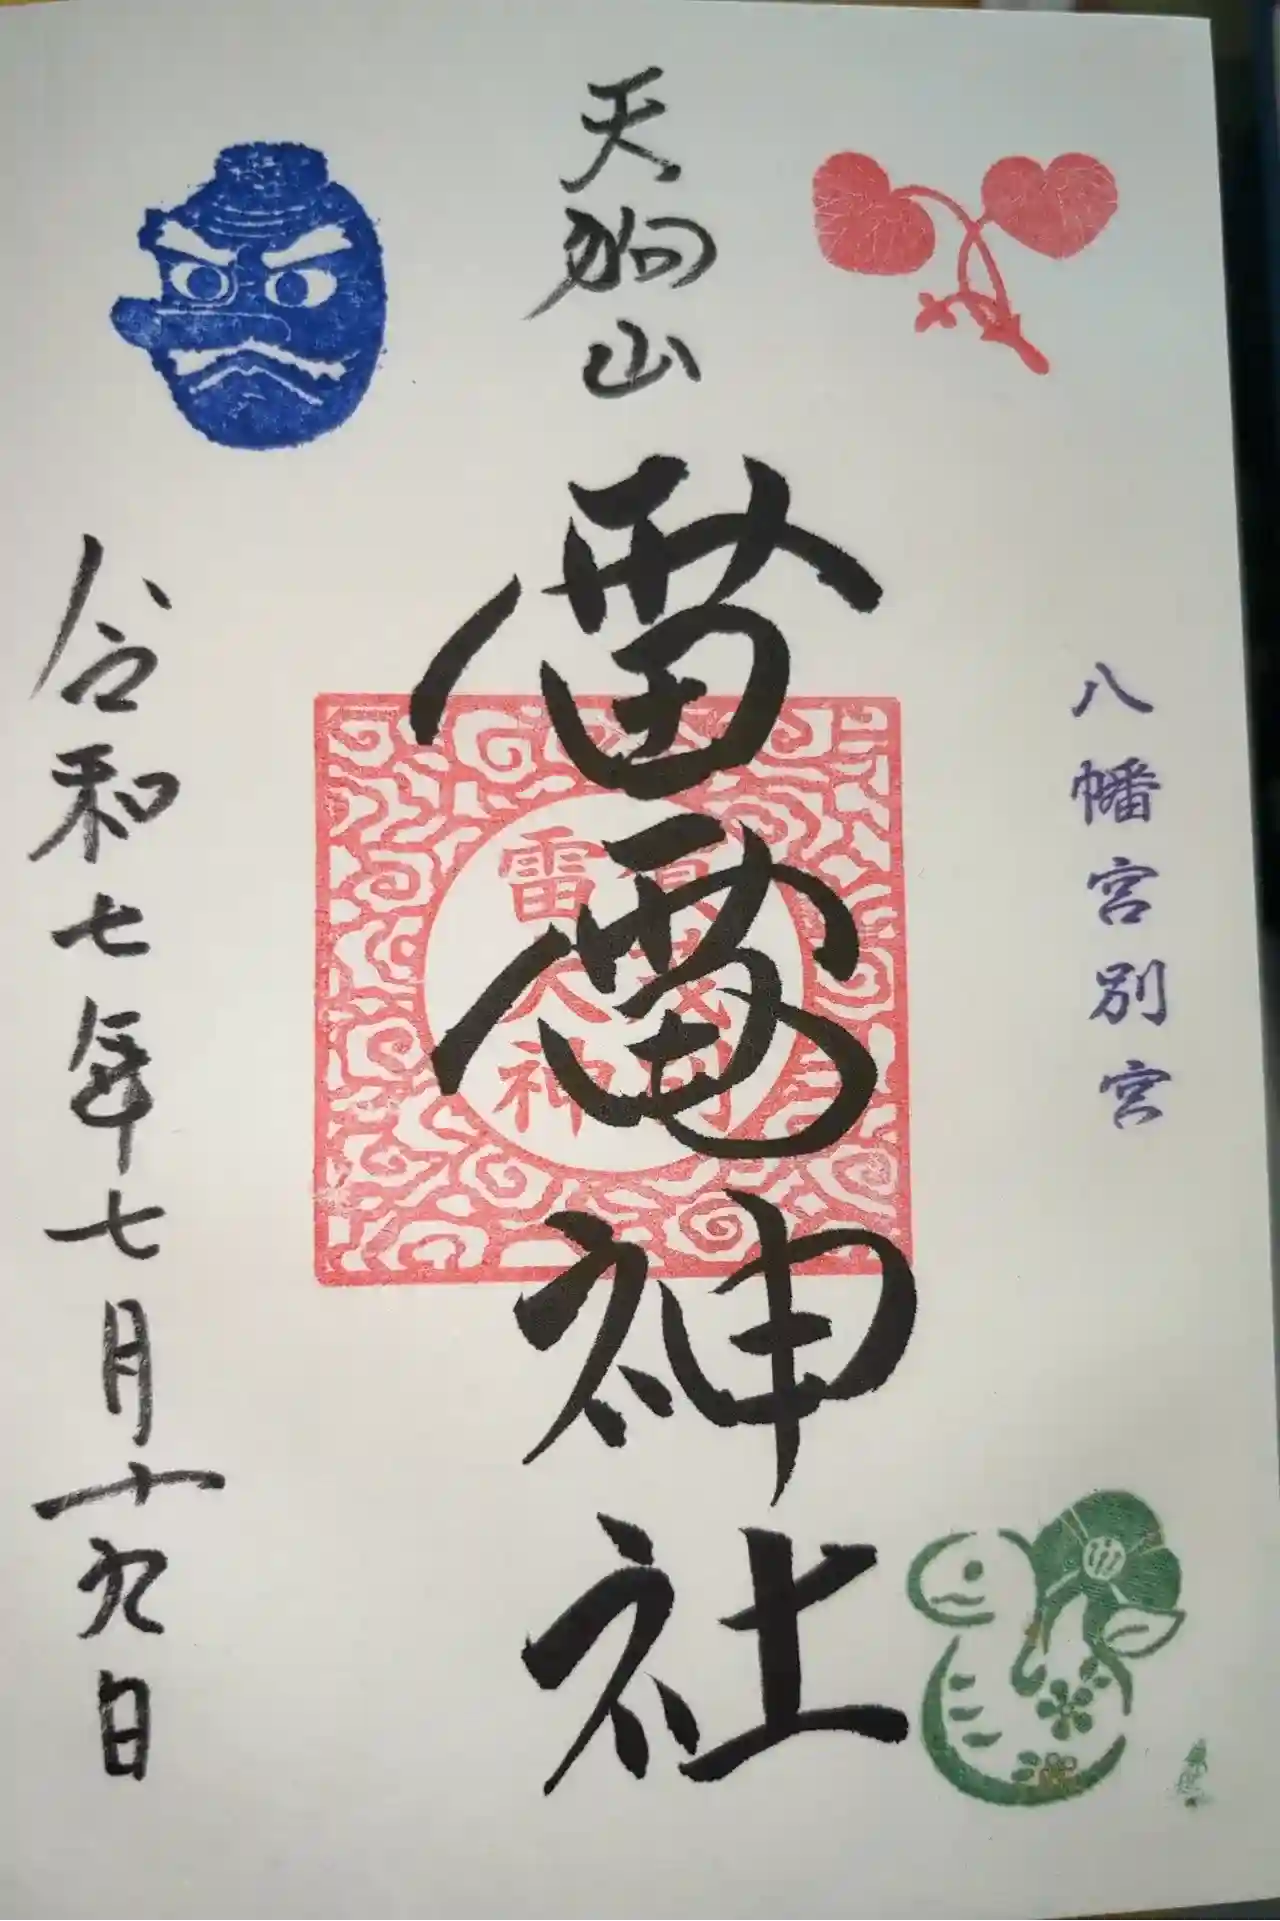 八幡宮別宮
天狗山
雷電神社
賀茂別
雷大神
令和七年七月十九日